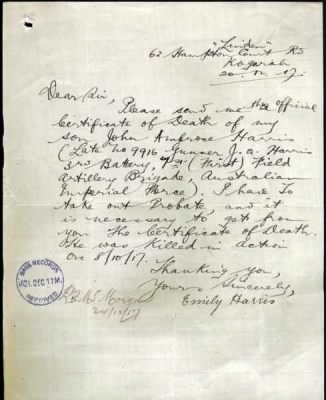 "Linden"
62 Hampton Court Rd
Kogarah
20.12.17.
Dear Sir,
Please send me the official
Certificate of Death of my
son John Ambrose Harris
(Late No 9916 Gunner J. A. Harris
3rd Battery, 1st (First) Field
Artillery Brigade, Australian
Imperial Force). I have to
take out Probate, and it
is necessary to get from
you the Certificate of Death.
He was killed in action
on 8/10/17.
Thanking you,
Yours Sincerely,
Emily Harris
BASE RECORDS
21 DEC 17
RECEIVED
24/12/17